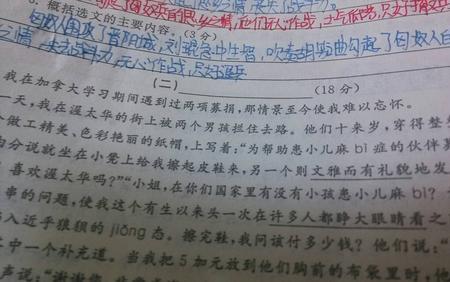 概括选文的主要内容。(3分)
匈奴人围攻了晋阳城,刘琨急中生智,吹奏胡笳曲勾起了匈奴人
之情,失去战斗力,无心作战,只好退兵
(二) (18分)
我在加拿大学习期间遇到过两项募捐,那情景至今使我难以忘怀。
一天,我在渥太华的街上被两个男孩拦住去路。他们十来岁,穿得整
个做工精美、色彩艳丽的纸帽,上写着:“为帮助患小儿麻bì症的伙伴募
由分说就坐在小凳上给我擦起皮鞋来,另一个则文雅而有礼貌地发
喜欢渥太华吗?”“小姐,在你们国家里有没有小孩患小儿麻bì?
串的问题,使我这个有生以来头一次在许多人都睁大眼睛看之
入近乎狼狈的jiǒng态。擦完鞋,我问该付多少钱?他们说:“
之中一个补充道。当我把5加元放到他们胸前的布袋里时,他
声说:“谢谢您